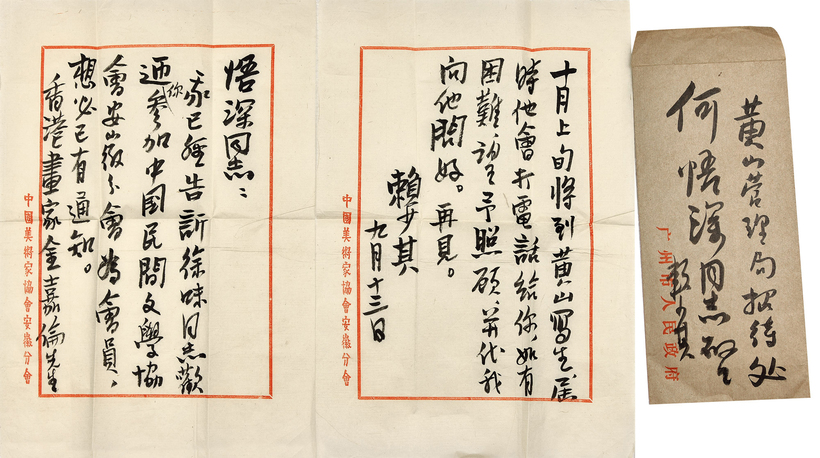 悟深同志：
我已經告訴徐味同志歡
迎你参加中国民間文學協
會安山徽分會為會員，
想必已有通知。
香港畫家金嘉倫先生
中國美術家協會安徽分會
十月上旬將到黄山寫生，届
時他會打電話給你，如有
困難，望予照顧，并代我
向他問好。再見。
賴少其
九月十三日
中國美術家協會安徽分會
黄山管理局招待处
何悟深同志啓
賴少其
广州市人民政府